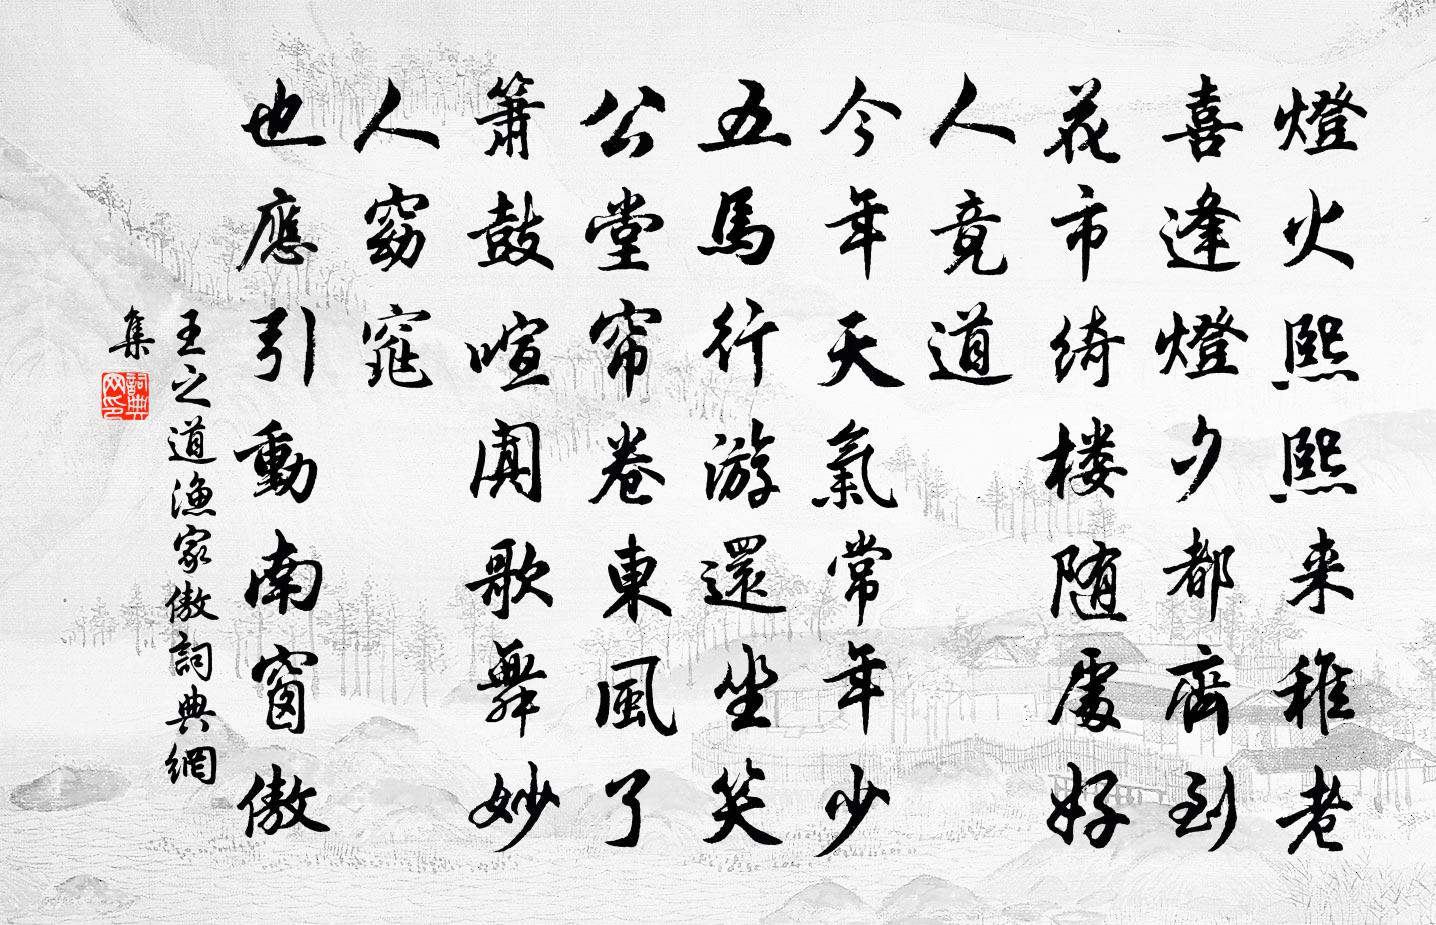 燈火熙熙来稚老
喜逢燈夕都齊到
花市绮楼随處好
人竟道
今年天氣常年少
五馬行游還坐笑
公堂帘卷東風了
簫鼓喧闐歌舞妙
人窈窕
也應引動南窗傲
王之道漁家傲詞典網
集
詞典网印